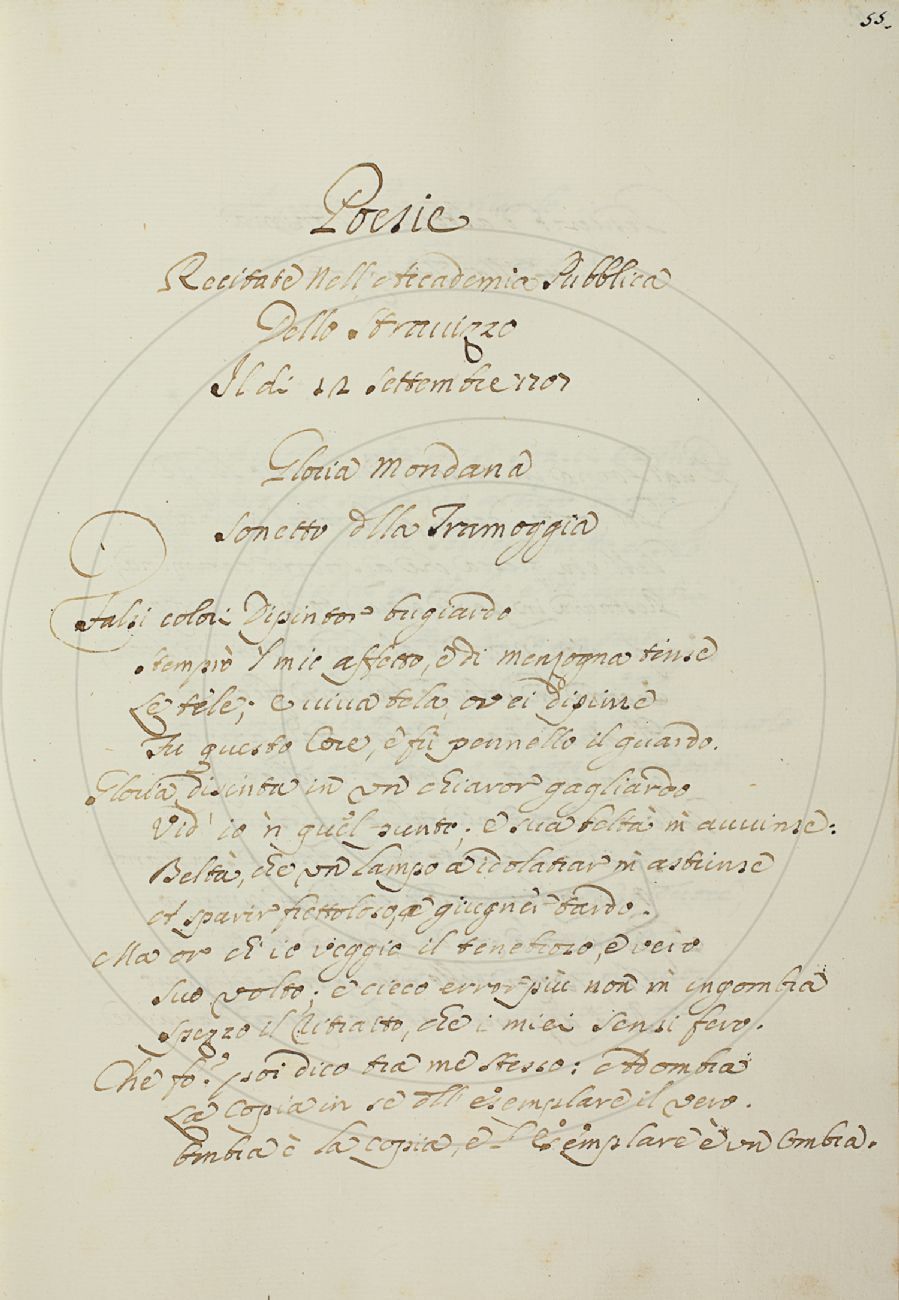 55.
Poesie
Recitate nell'Accademia Pubblica
Dello Stravizzo
Il dì 12 Settembre 1707
Gloria Mondana
Sonetto dlla Tramoggia
Falsi colori Dipintor bugiardo
Stemprò 'l mio affetto, è di menzogna tinse
Le tele; e viva tela, ov' ei dipinse
Fu questo Core, è fù pennello il guardo.
Gloria dipinta in un chiaror gagliardo
Vid' io 'n quel punto; e sua beltà m'avvinse:
Beltà, che un lampo a idolatrar m'astrinse
A sparir frettoloso, a giugner tardo.
Ma or ch'io veggio il tenebroso, è vero
suo volto; e cieco error più non m'ingombra
spezzo il Ritratto, che i miei sensi fero.
Che fo? poi dico tra me stesso: Adombra
La Copia in se dll' esemplare il vero.
Ombra è la copia, è l'Esemplare è un Ombra.